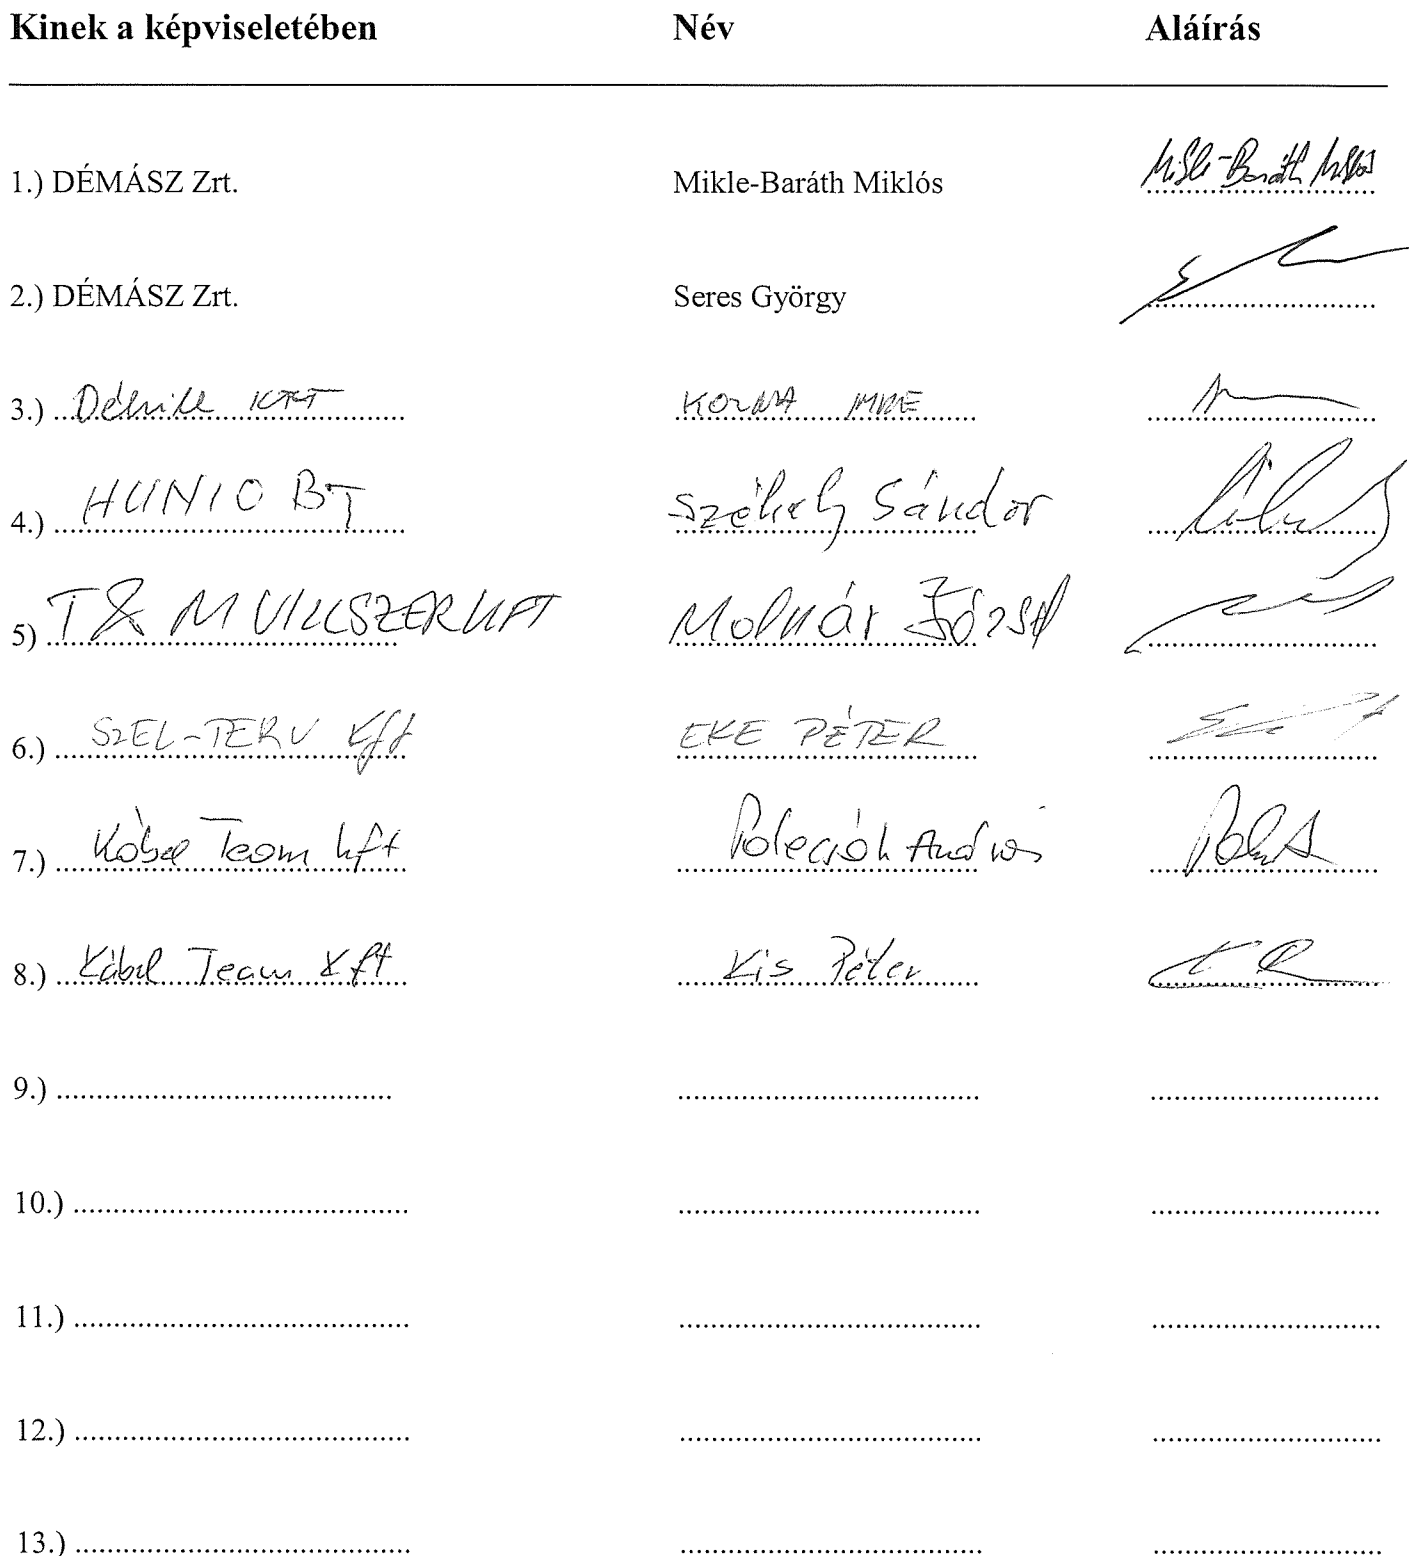 Kinek a képviseletében Név Aláírás
1.) DÉMÁSZ Zrt. Mikle-Baráth Miklós Mikle-Baráth Miklós
2.) DÉMÁSZ Zrt. Seres György
3.) IMRE
4.) HUNIO BT Székely Sándor
5) T & M VILLSZER KFT Molnár József
6.) SZEL-TERV Kft EKE PÉTER
7.) Kábel Team kft András
8.) Kábel Team Kft Kis Péter
9.)
10.)
11.)
12.)
13.)